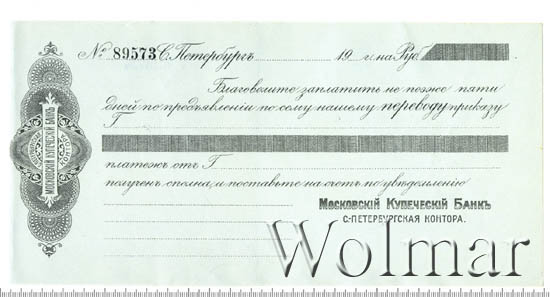 № 89573 С. Петербургъ 19 г. на Руб.
Благоволите заплатить не позже пяти
дней по предъявленіи по сему нашему переводу приказу
Г
платежъ отъ Г
получен сполна, и поставьте на счетъ по увѣдомленію
Московскій Купеческій Банкъ
С.-Петербургская Контора.
Московскій Купеческій Банкъ
Wolmar